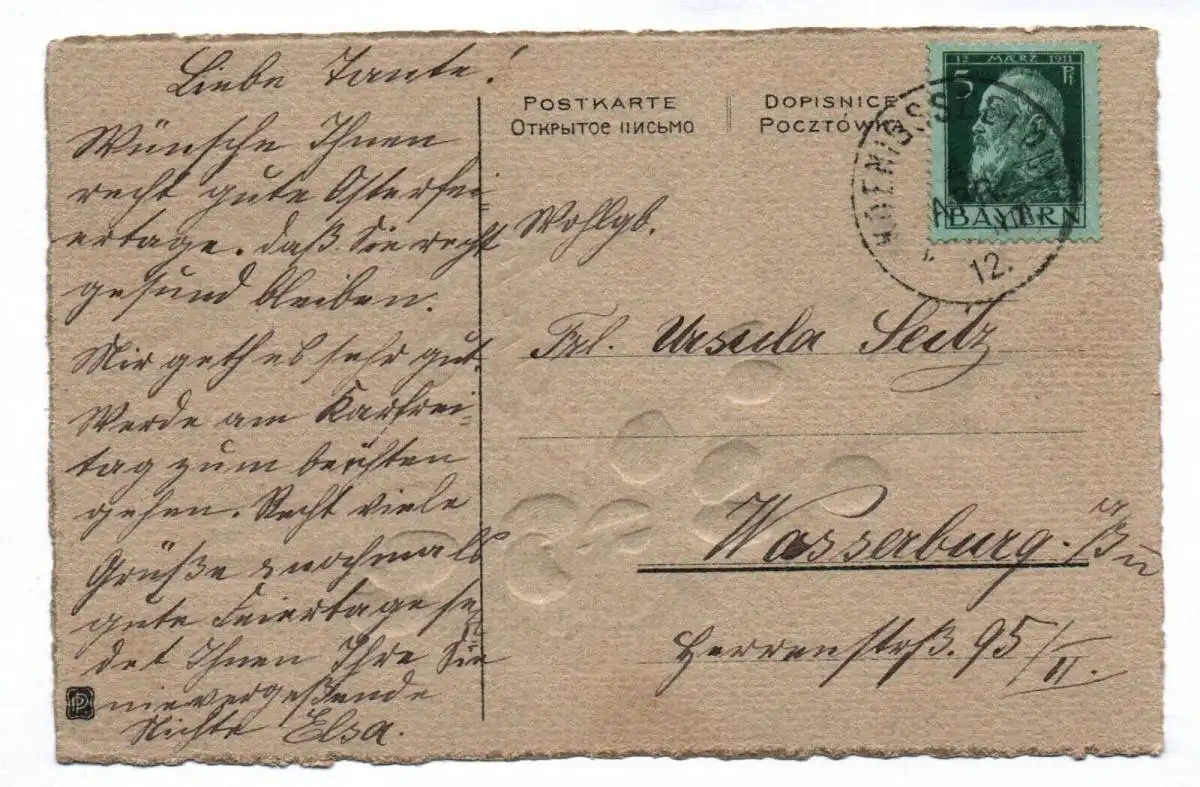 Liebe Tante!
Wünsche Ihnen
recht gute Osterfei-
ertage. daß Sie recht
gesund bleiben.
Mir geth es sehr gut.
Werde am Karfrei-
tag zum beichten
gehen. Recht viele
Grüße & nochmals
gute Feiertage sen
det Ihnen Ihre Sie
nievergeßende
Nichte Elsa.
POSTKARTE
ОТКРЫТОЕ ПИСЬМО
DOPISNICE
POCZTÓWKA
12 MÄRZ 1911
5 Pf
BAYERN
12.
Wohlgb.
Frl. Ursula Seitz
Wasserburg.
Herrenstrß. 95/II.